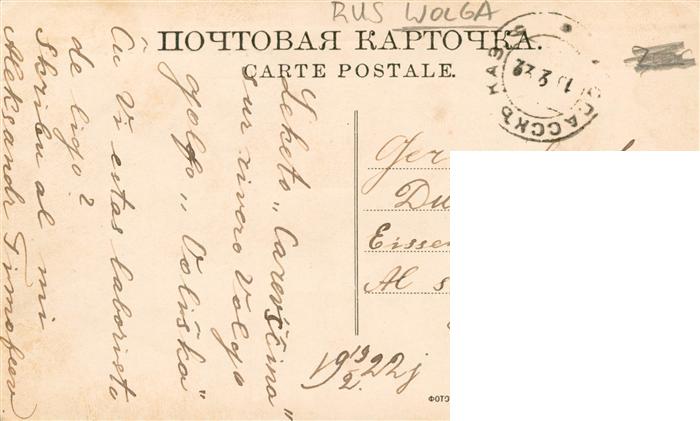 RUS WOLGA
ПОЧТОВАЯ КАРТОЧКА.
CARTE POSTALE.
СПАССКЪ КАЗ
Seketo „Carevščina"
sur rivero Volgo
golfo „Voliška"
Ĉu Vi estas laboristo
de ligo?
Skribu al mi
Aleksandr Timofeev.
Ger
Du
Eissen
Al s
19 19/2. 22j
ФОТО